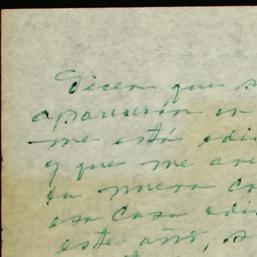 Dicen que s
aparición en
me está edi
y que me av
en nueva co
esa Casa edi
este año, s